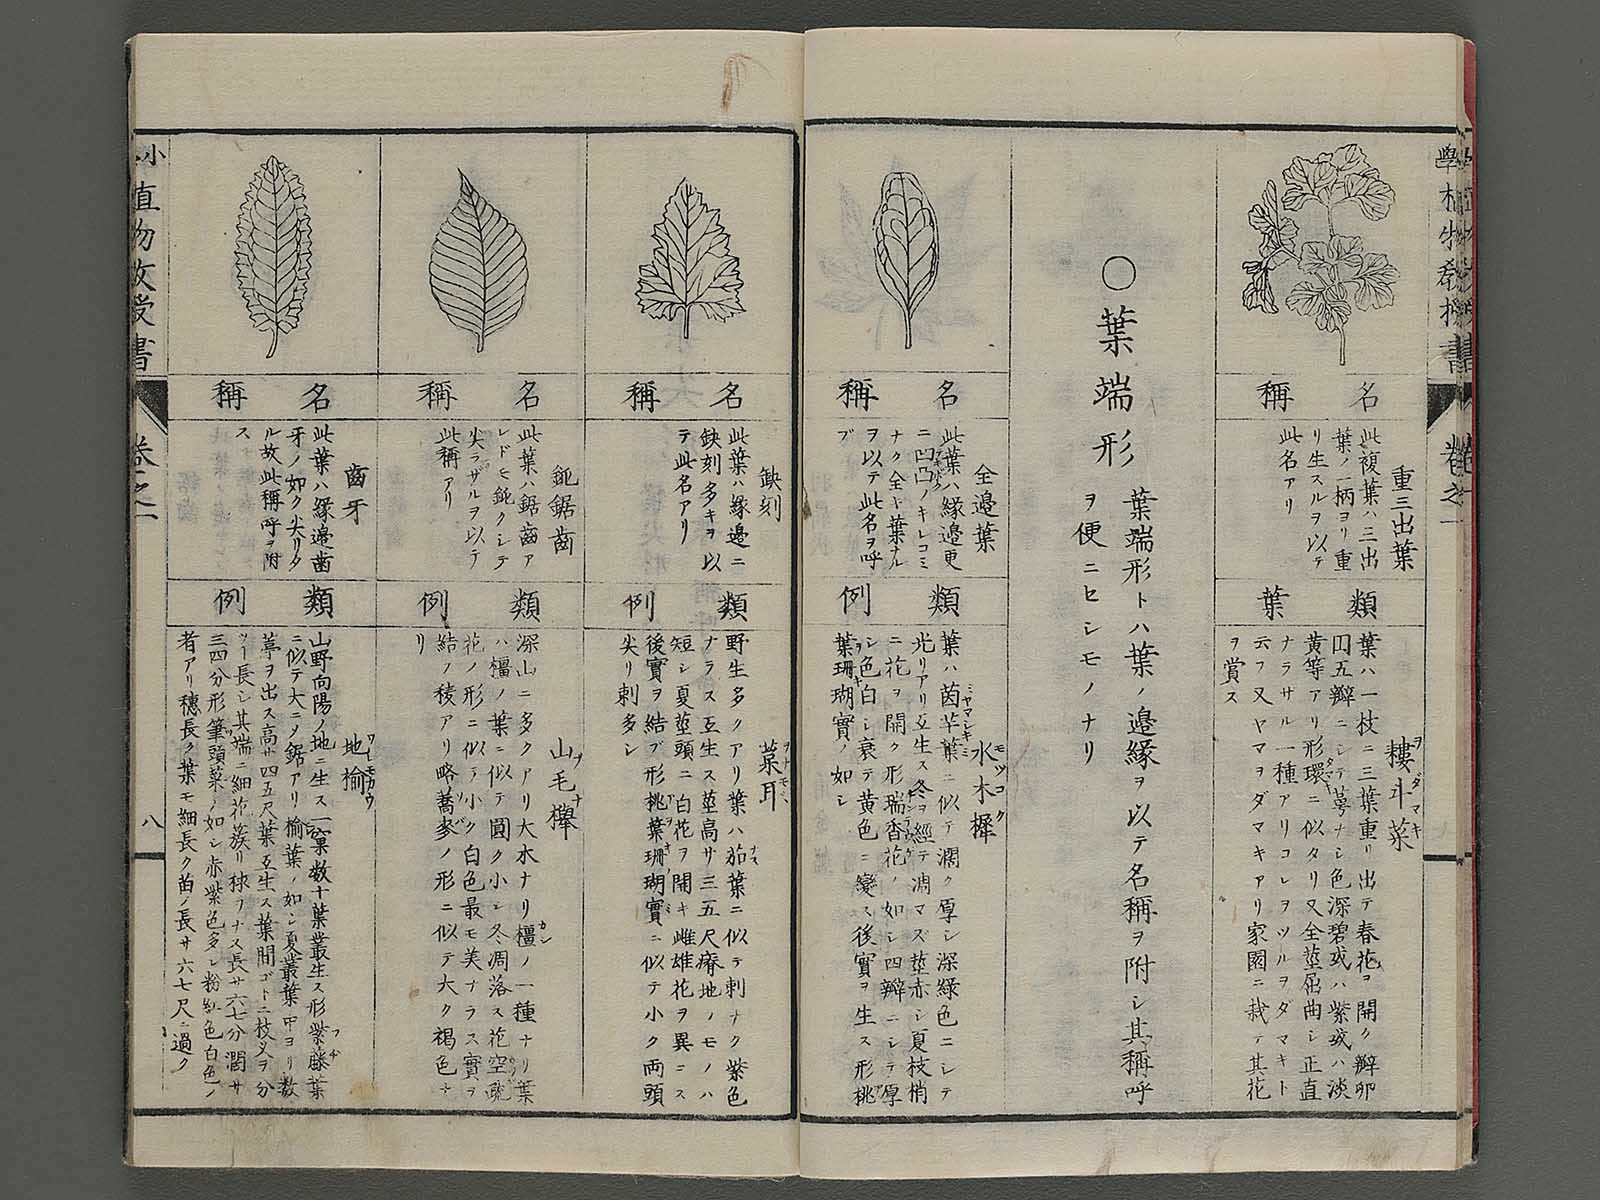 名稱
重三出葉
此複葉ハ三出
葉ノ一柄ヨリ重
リ生スルヲ以テ
此名アリ
類葉
ヲダマキ
耬斗菜
葉ハ一枝ニ三葉重リ出テ春花ヲ開ク瓣卯
凹五瓣ニシテ萼ナシ色深碧或ハ紫或ハ淡
黄等アリ形環ニ似タリ又全莖屈曲シ正直
ナラサル一種アリコレヲツルヲダマキト
云フ又ヤマヲダマキアリ家園ニ栽テ其花
ヲ賞ス
〇葉端形
葉端形トハ葉ノ邉緣ヲ以テ名稱ヲ附シ其稱呼
ヲ便ニセシモノナリ
名稱
全邉葉
此葉ハ緣邉更
ニ凹凸ノキレコミ
ナク全キ葉ナル
ヲ以テ此名ヲ呼
ブ
類例
モツコク
水木樨
葉ハ茵芋葉ニ似テ濶ク厚シ深緑色ニシテ
ミヤマシキミ
光リアリ互生ス冬ヲ經テ凋マズ莖赤シ夏枝梢
ニ花ヲ開ク形瑞香花ノ如シ四瓣ニシテ厚
シ色白シ衰テ黄色ニ變ス後實ヲ生ス形桃
葉珊瑚實ノ如シ
名稱
缺刻
此葉ハ緣邉ニ
缺刻多キヲ以
テ此名アリ
類例
ヲナモミ
葈耳
野生多クアリ葉ハ茄葉ニ似テ刺ナク紫色
ナス
ナラス互生ス莖高サ三五尺瘠地ノモノハ
短シ夏莖頭ニ白花ヲ開キ雌雄花ヲ異ニス
後實ヲ結ブ形桃葉珊瑚實ニ似テ小ク両頭
尖リ刺多シ
名稱
鈍鋸齒
此葉ハ鋸齒ア
レドモ鈍クシテ
尖ラザルヲ以テ
此稱アリ
類例
ブナ
山毛櫸
深山ニ多クアリ大木ナリ橿ノ一種ナリ葉
カシ
ハ橿ノ葉ニ似テ圓ク小シ冬凋落ス花空疏
花ノ形ニ似テ小ク白色最モ美ナラス實ヲ
結ブ稜アリ略蕎麥ノ形ニ似テ大ク褐色ナ
ソバ
リ
名稱
齒牙
此葉ハ緣邉齒
牙ノ如ク尖リタ
ル故此稱呼ヲ附
ス
類例
ワレモカウ
地楡
山野向陽ノ地ニ生ス一窠数十葉叢生ス形紫藤葉
フヂ
ニ似テ大ニノ鋸アリ楡葉ノ如シ夏叢葉中ヨリ数
莖ヲ出ス高サ四五尺葉互生ス葉間ゴトニ枝叉ヲ分
ツ一長シ其端ニ細花簇リ穂ヲナス長サ六七分濶サ
三四分形筆頭菜ノ如シ赤紫色多シ粉紅色白色ノ
者アリ穗長ク葉モ細長ク苗ノ長サ六七尺ニ過ク
小
植物教授書
卷之一
八